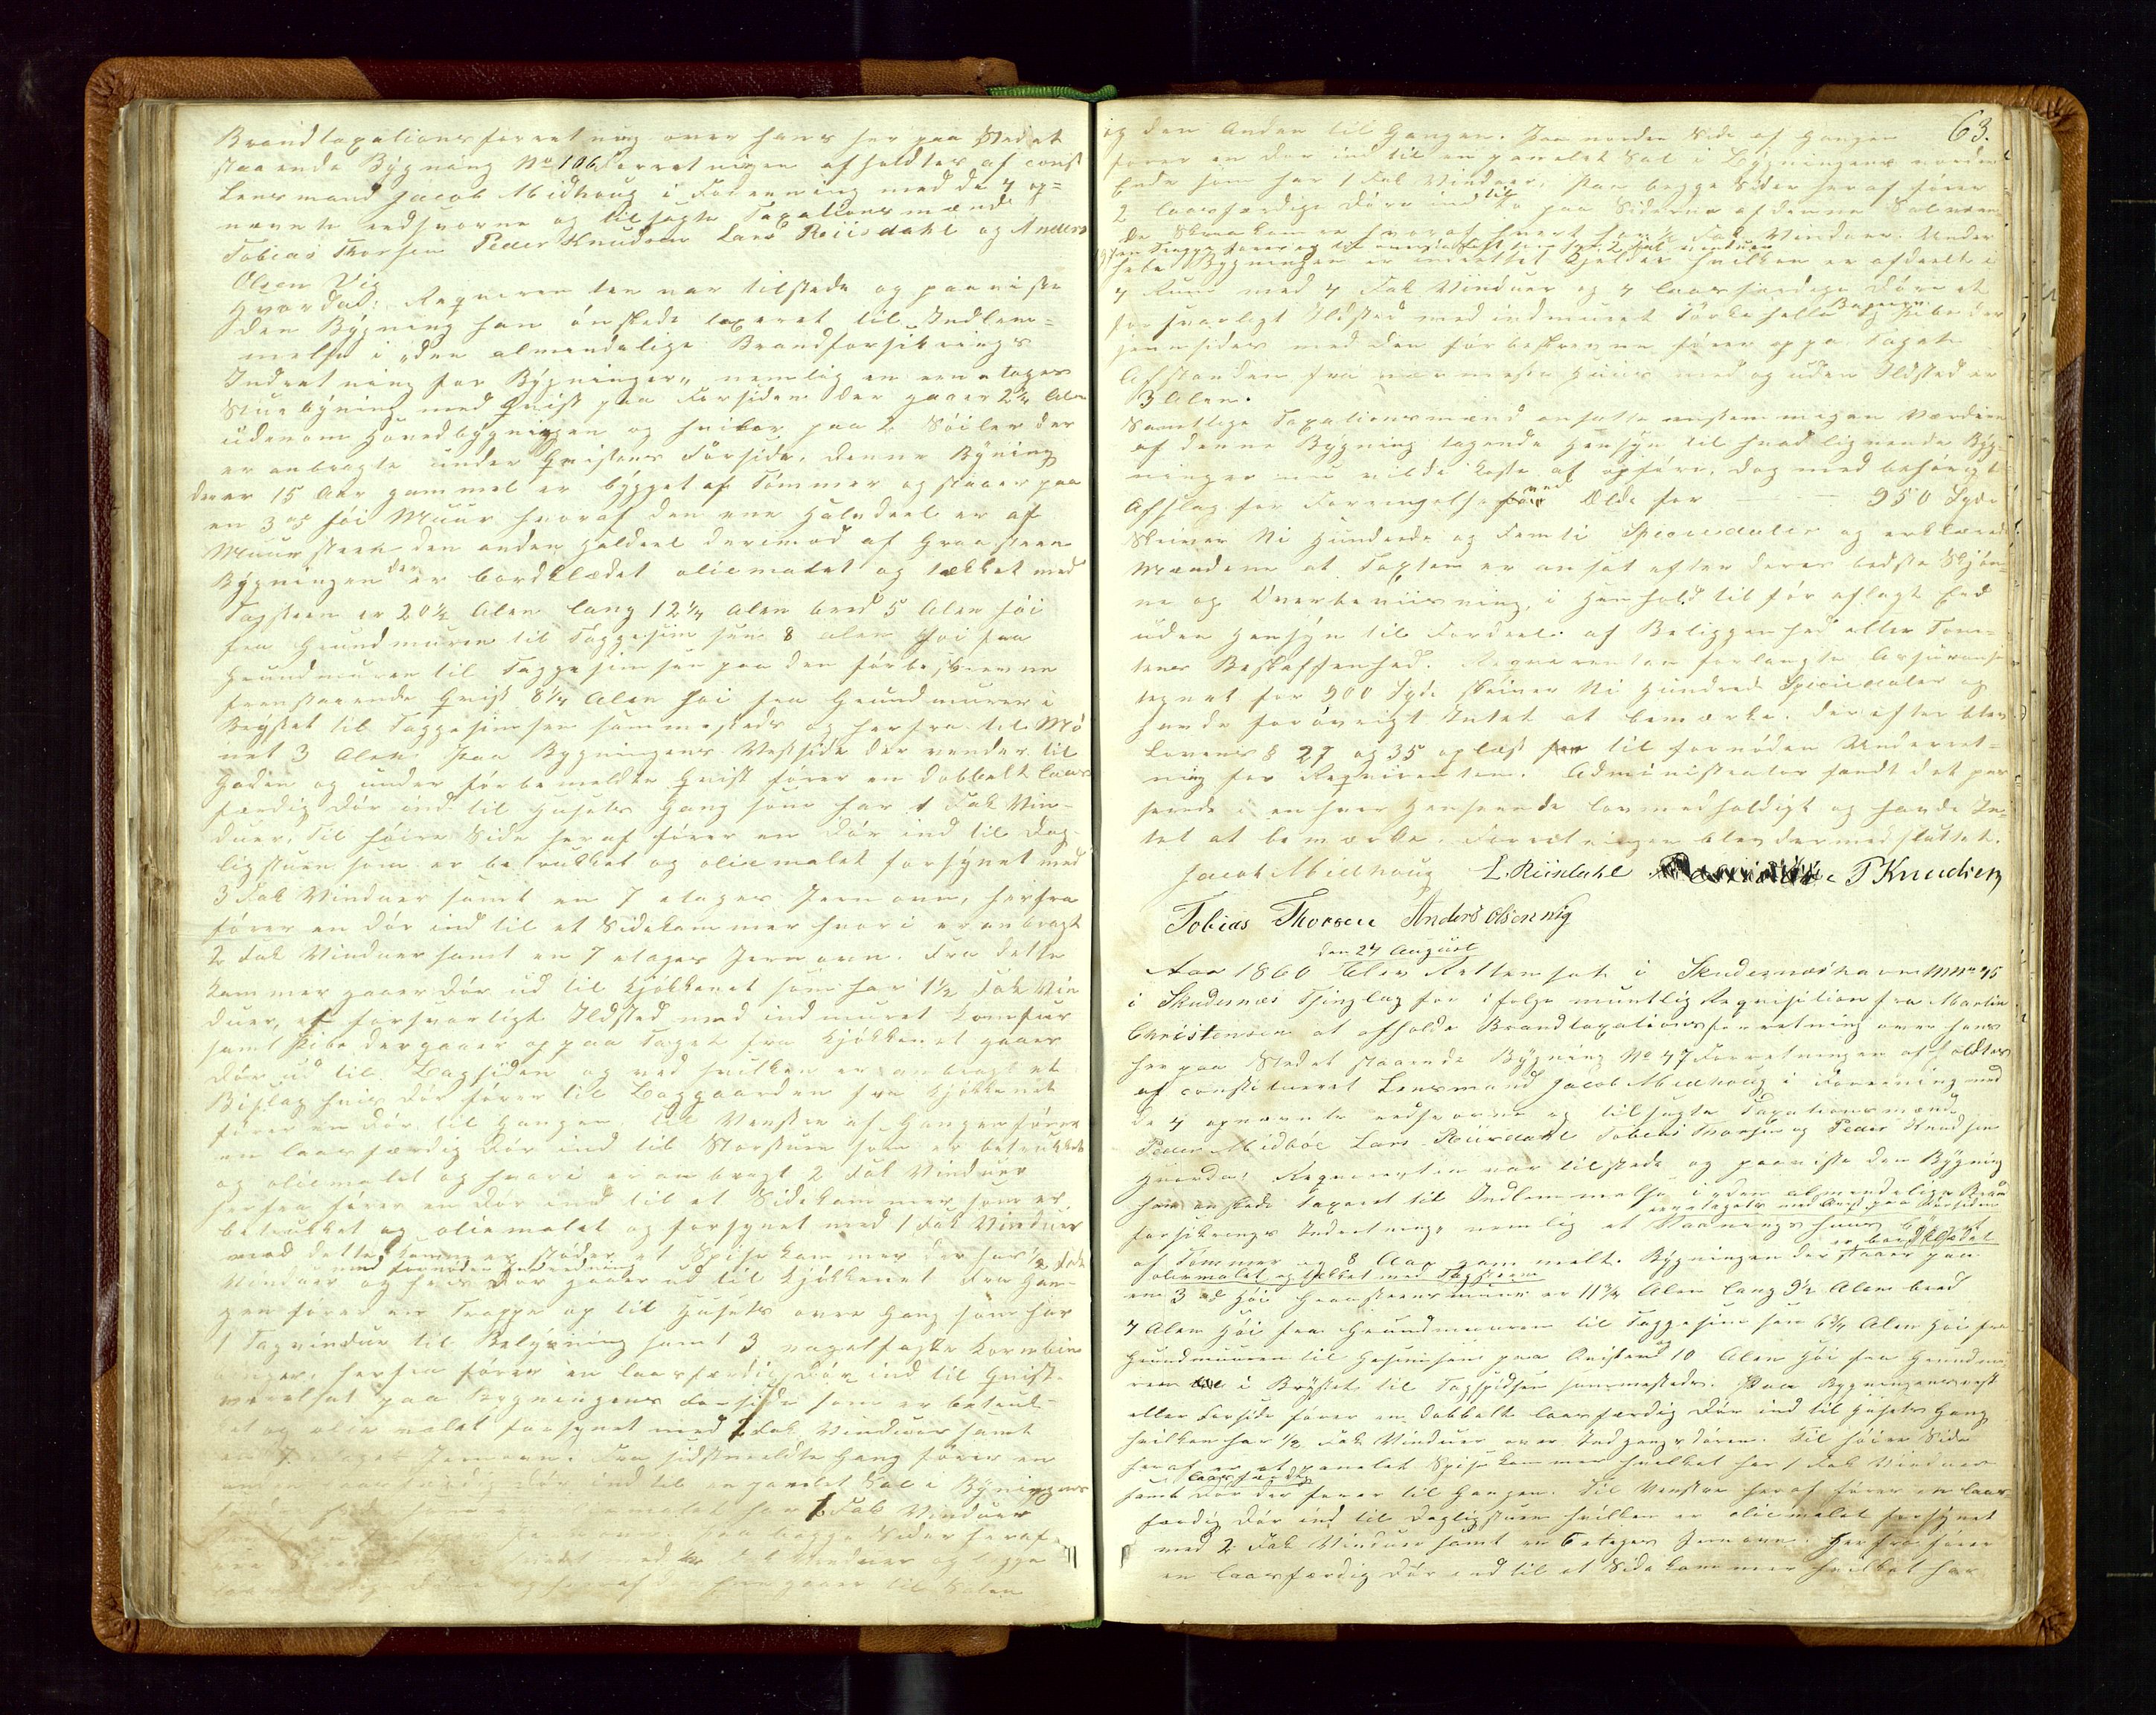 Brandtaxationsforretning over hans her paa Stedet
staaende Bygning No 106 Forretningen afholdtes af const
Lensmand Jacob Midhoug i Forening med de 4 op=
nævnte eedsvorne og tilsagte Taxationsmænd
Tobias Thorsen Peder Knudsen Lars Reiisdahl og Anders
Olsen Vig
Hvorda: Reqvirenten var tilstede og paaviste
den Bygning han ønskede taxeret til Indlem=
melse i "den almindelige Brandforsikrings
Indretning for Bygninger" nemlig en een etages
Stuebygning med Qvist paa Forsiden der gaaer 2¾ Alen
udenom Hovedbygningen og hviler paa 2 Søiler der
er anbragte under Qvistens Forside. Denne Bygning
der er 15 Aar gammel er bygget af Tømmer og staaer paa
en 3 al høi Muur hvoraf den ene Halvdeel er af
Muursteen den anden Haldeel derimod af Graasteen
Bygningen der er bordklædet oliemalet og tækket med
Tagsteen er 20½ Alen lang 12¼ Alen bred 5 Alen høi
fra Grundmuren til Taggesimsen 8 alen høi fra
Grundmuren til Taggesimsen paa den førbeskrevne
fremstaaende Qvist 8¼ Alen høi fra Grundmuren i
Brystet til Taggesimsen sammesteds og herfra til Mø
net 3 Alen. Paa Bygningens Vestside der vender til
Gaden og under førbemeldte Qvist fører en dobbelt laas
færdig Dør ind til Husets Gang som har 1 Fak Vin-
duer. Til høire Side heraf fører en Dør ind til Dag-
ligstuen som er betrukket og oliemalet forsynet med
3 Fak Vinduer samt en 7 etages Jernovn, herfra
fører en Dør ind til et Sidekammer hvori er anbragt
2 Fak Vinduer samt en 7 etages Jernovn. Fra dette
Kammer gaaer Dør ud til Kjøkkenet som har 1½ Fak Vin
duer, et forsvarligt Ildsted med indmuret Komfur
samt Pibe der gaaer op paa Taget fra Kjøkkenet gaaer
Dør ud til Bagsiden og ved hvilken er anbragt et
Bislag hvis Dør fører til Baggaarden fra Kjøkkenet
fører en Dør til Gangen. Til Venstre af Gangen fører
en laasfærdig Dør ind til Storstuen som er betrukket
og oliemalet og hvori er anbragt 2 Fak Vinduer
herfra fører en Dør ind til et Sidekammer som er
betrukket og oliemalet og forsynet med 1 Fak Vinduer
ved dette Kammer støder et Spisekammer der har ½ Fak
med fornøden Indredning
Vinduer og hvis Dør gaaer ud til Kjøkkenet Fra Gan-
gen fører en Trappe op til Husets øvre Gang som har
1 Tagvindue til Belysning samt 3 nagelfaste Kornbin
herfra fører en laasfærdig Dør ind til Qvist-
værelset paa Bygningens Forside som er betruk-
ket og oliemalet forsynet med 2 Fak Vinduer samt
en 7 etages Jernovn. Fra sidstmeldte Gang fører en
anden laasfærdig Dør ind til en panelet Sal i Bygningens
har 1 Fak Vinduer
paa begge Sider heraf
med ½ Fak Vinduer og begge
gaaer til Salen
63.
og den Anden til Gangen. Paa nordre Side af Gangen
fører en Dør ind til en panelet Sal i Bygningens nordre
Ende som har 1 Fak Vinduer. Paa begge Sider heraf fører
2 laasfærdige Døre ind til to paa Siderne af denne Sal væren
de Skraakamre hvoraf hvert har ½ Fak Vinduer. Under
hele Bygningen er indrettet Kjelder hvilken er afdeelt i
4 Rum med 4 Fak Vinduer og 4 laasfærdige Døre et
forsvarligt Ildsted med indmuret Tørkehelle Bagerovn og Pibe der
jennsides med den førbeskrevne fører op paa Taget
Afstanden fra nærmeste Huus med og uden Ildsted er
3 Alen.
Samtlige Taxationsmænd ansatte eenstemmigen Værdien
af denne Bygning tagende Hensyn til hvad lignende Byg-
ninger nu vilde koste at opføre, dog med behørigt
Afslag for Forringelse ved Ælde for — — 950 Spd
skriver Ni Hundrede og Femti Speciedaler og erklærede
Mændene at Taxten er ansat efter deres bedste Skjøn-
ne og Overbeviisning, i Henhold til før aflagt Eed
uden Hensyn til Fordeel af Beliggenhed eller Tom-
tens Beskaffenhed. Reqvirenten forlangte Assurance
tegnet for 900 Spd skriver Ni Hundred Speciedaler og
havde forøvrigt Intet at bemærke. Derefter blev
Lovens § 27 og 35 oplæst til fornøden Underret=
ning for Reqvirenten. Administrator fandt det pas
serede i enhver Henseende lovmedholdigt og havde In-
tet at bemærke. Forretningen blev dermed sluttet.
Jacob Midhoug L. Reiisdahl P Knudsen
Tobias Thorsen Anders Olsen Vig
den 24 August
Aar 1860 blev Retten sat i Skudesnæshavn MNo 45
i Skudesnæs Thinglag for ifølge muntlig Reqvisition fra Martin
Christensen at afholde Brandtaxationsforretning over hans
her paa Stedet staaende Bygning No 47 Forretningen afholdtes
af constitueret Lensmand Jacob Midhoug i Forening med
de 4 opnævnte eedsvorne og tilsagte Taxationsmænd
Peder Midbøe Lars Reiisdahl Tobias Thorsen og Peder Knudsen
Hvorda: Reqvirenten var tilstede og paaviste den Bygning
han ønskede taxeret til Indlemmelse i "den almindelige Brand
eenetages med Qvist paa Forsiden
forsikrings Indretning" nemlig et Vaaningshuus bygget
er bordklædet
af Tømmer og 8 Aar gammelt. Bygningen der staaer paa
oliemalet og tækket med Tagsteen
en 3 al høi Graasteensmuur er 11¾ Alen lang 9½ Alen bred
4 Alen høi fra Grundmuuren til Taggesimsen 6¾ Alen høi fra
Grundmuuren til Gesimsen paa Qvisten og 10 Alen høi fra Grundmu
ren i Brystet til Tagspidsen sammesteds. Paa Bygningens vest
eller Forside fører en dobbelt laasfærdig Dør ind til Husets Gang
hvilken har ½ Fak Vinduer over Indgangsdøren. Til høire Side
heraf er et panelet Spisekammer hvilket har 1 Fak Vinduer
laasfærdig
samt Dør der fører til Gangen. Til Venstre heraf fører en laas-
færdig Dør ind til Dagligstuen hvilken er oliemalet forsynet
med 2 Fak Vinduer samt en 6 etages Jernovn. Herfra fører
en laasfærdig Dør ind til et Sidekammer hvilket har